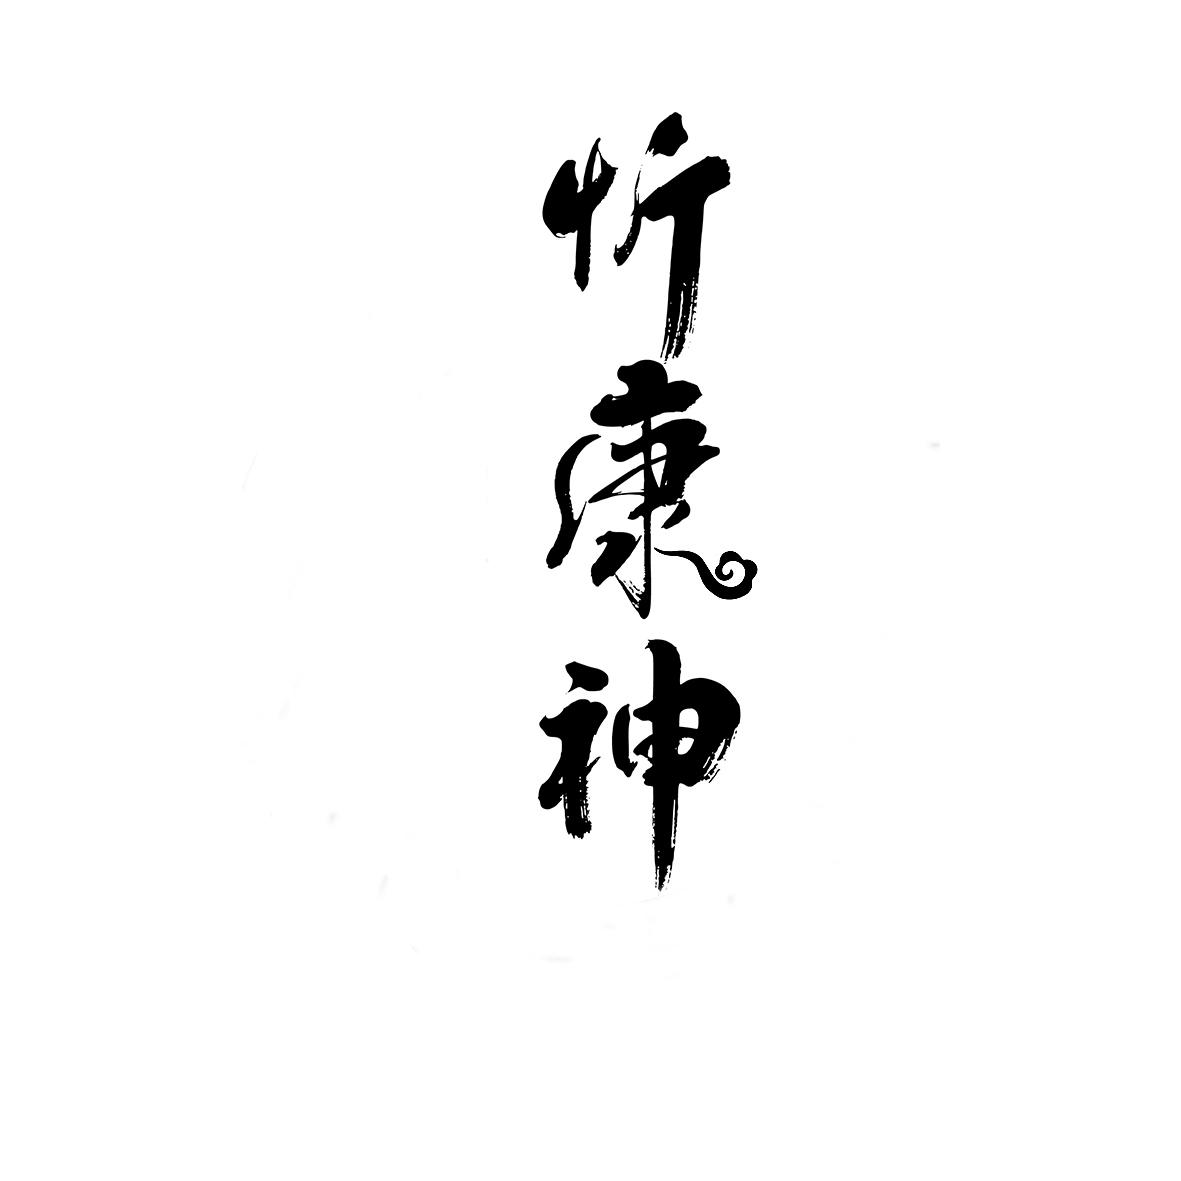 忻康神